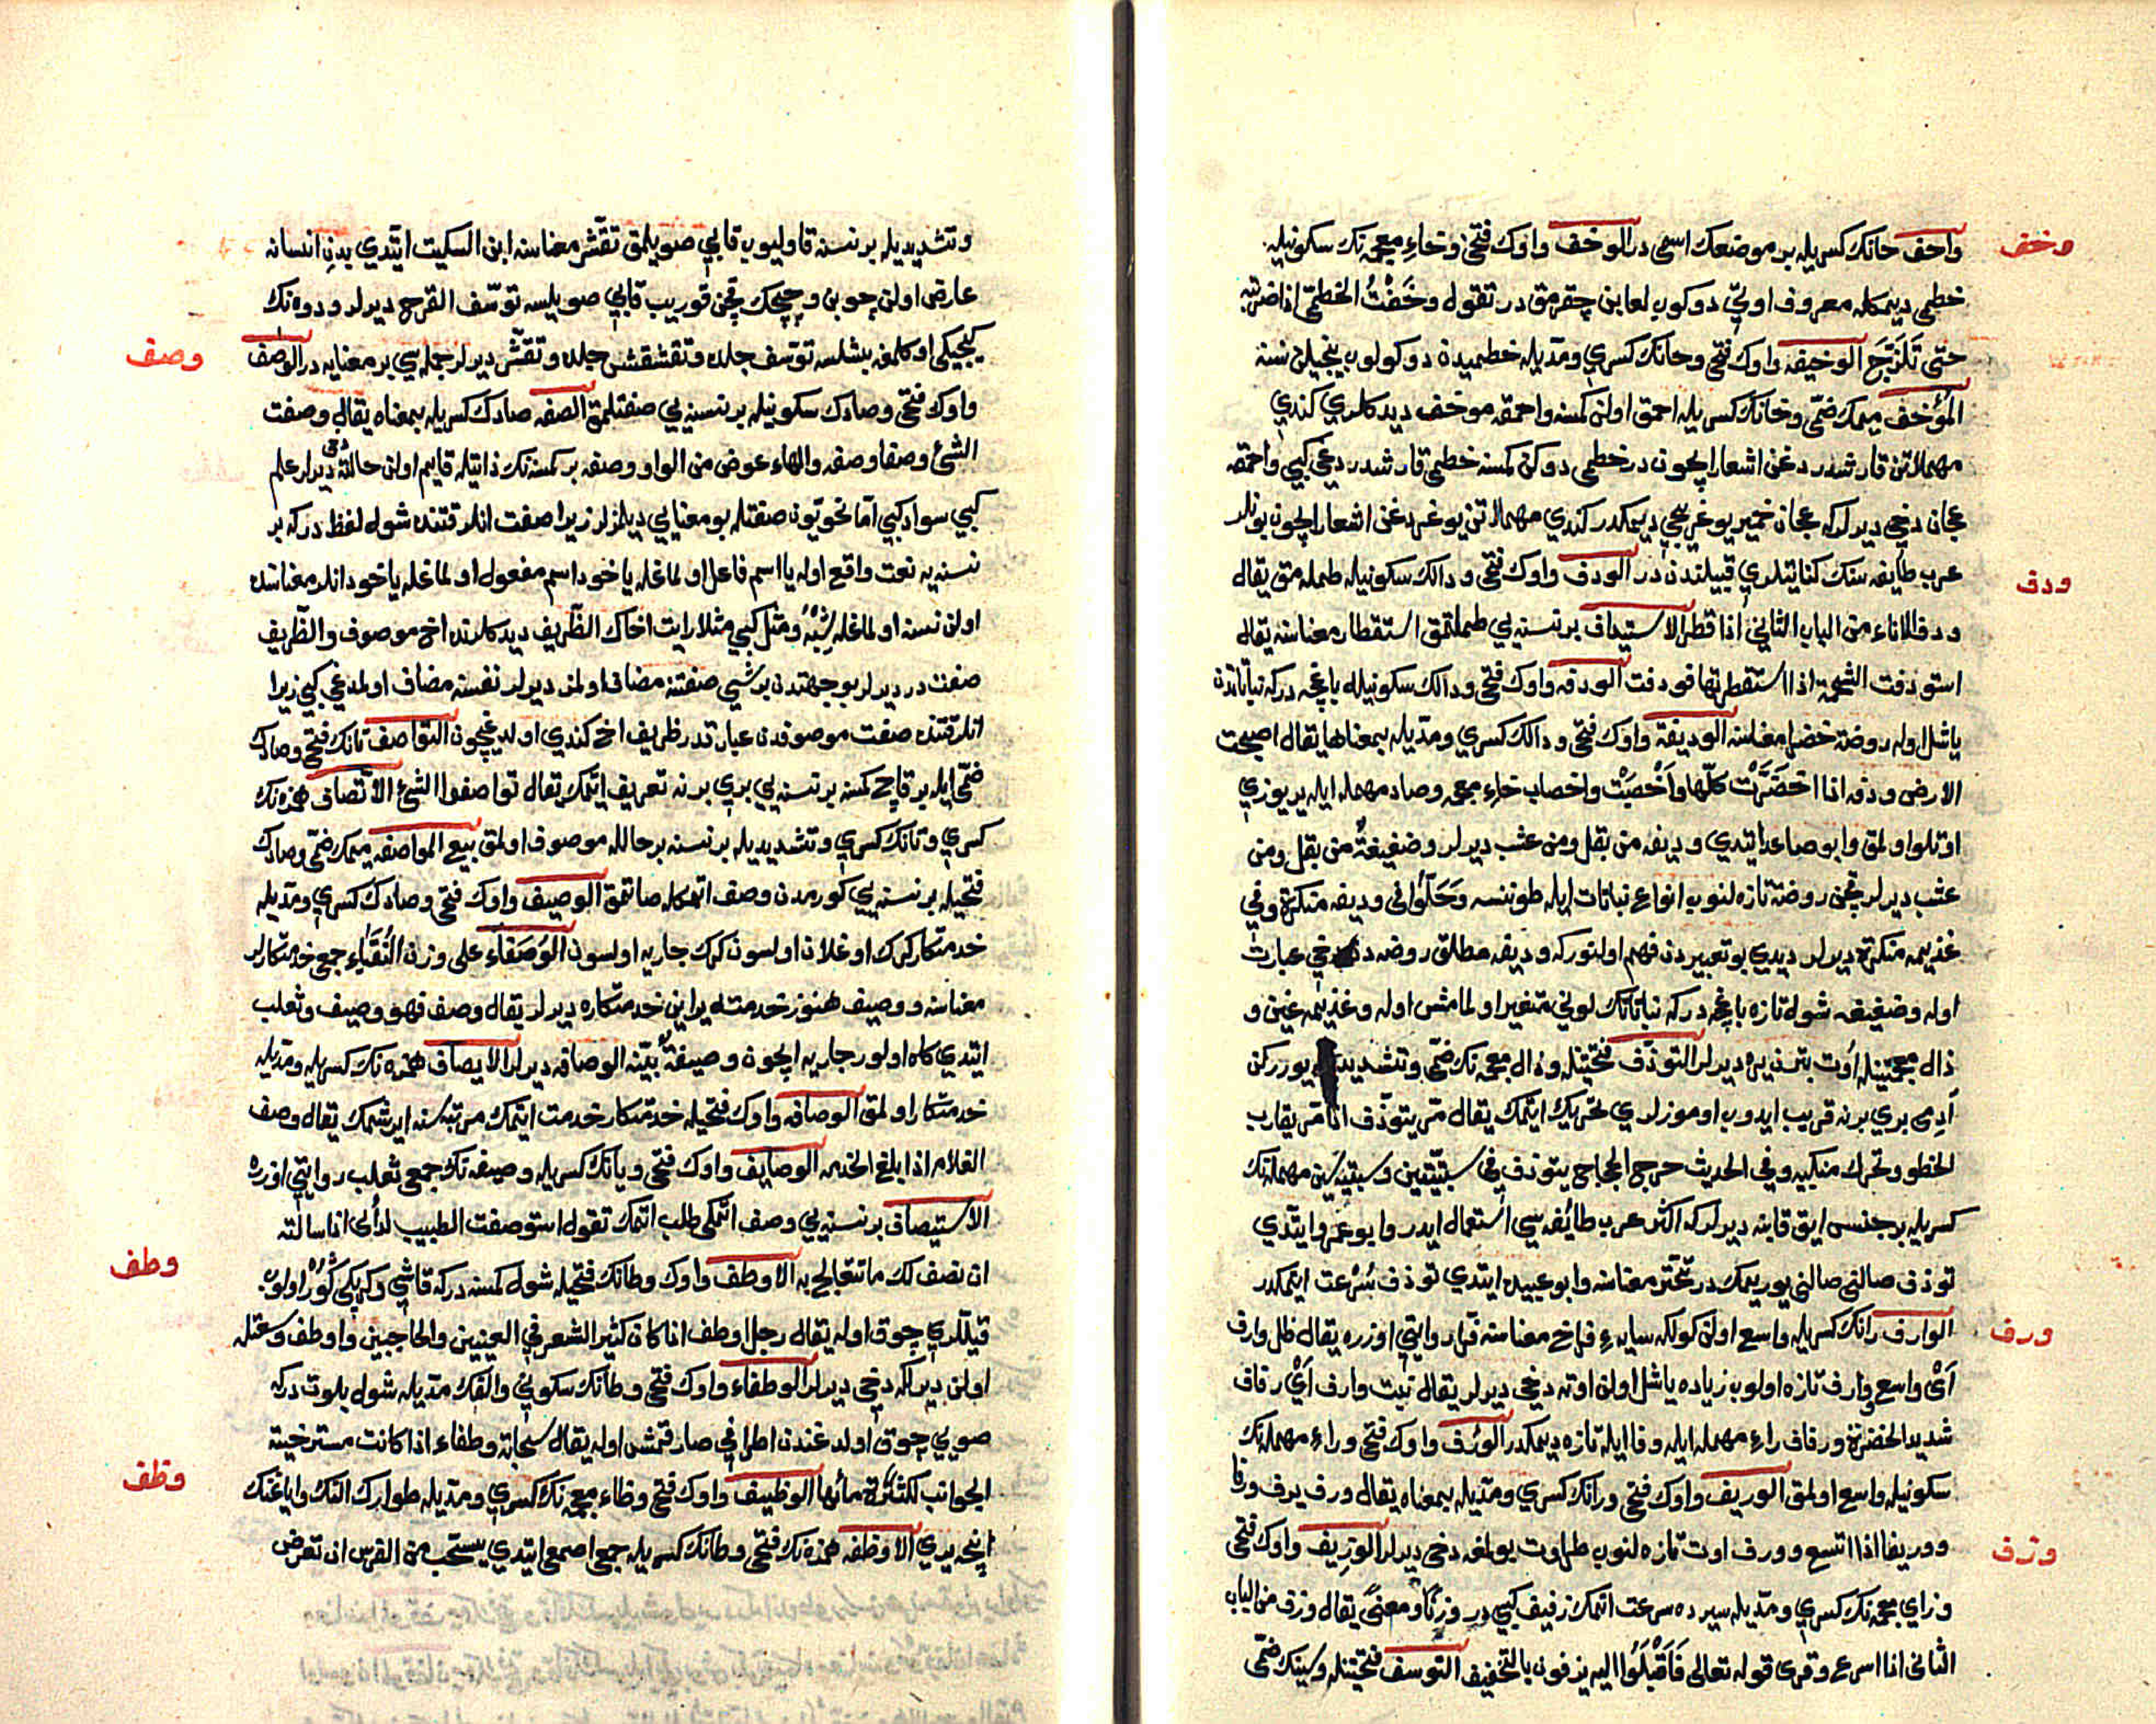 وخف
واحف حانك كسريله بر موضعك اسمى در الوخف واوك فتحى وخاء معجمه نك سكونيله
خطمى ديمكله معروف اولنى دوكوب لعابن چقرمق در تقول وخفت الخطمى اذا ضربته
حتى تلزج الوخيفه واوك فتحى وخانك كسرى ومديله خطميدن دوكولوب بيچيلن نسنه
الموخف ميمك ضمى وخانك كسريله احمق اولن كمسنه واحمقه موخف ديدكلرى كندى
مهملاتن قارشدردغن اشعار ايچون در خطمى دوكن كمسنه خطمى قارشدردغى كبى واحمقه
عجان دخى ديرلر كه عجان خمير يوغريجى ديمكدر كندى مهملاتن يوغردغن اشعار ايچون بونلر
ودف
عرب طايفه سنك كنايتلرى قبيلندن در الودف واوك فتحى ودالك سكونيله طمله مق يقال
ودف الاناء من الباب الثانى اذا قطر الاستيداف بر نسنه يى طملتمق استقطار معناسنه يقال
استودفت الشحمة اذا استقطرتها فودفت الودفه واوك فتحى ودالك سكونيله باغچه در كه نباتاتدن
ياشل اوله روضة خضرا معناسنه الوديفة واوك فتحى ودالك كسرى ومديله بمعناها يقال اصبحت
الارض ودفه اذا اخضرت كلها واخصبت واخصاب خاء معجمه وصاد مهمله ايله ير يوزى
اوتلو اولمق وابو صاعد ايتدى وديفه من بقل ومن عشب ديرلر وضغيغة من بقل ومن
عشب ديرلر قچن روضه تازه لنوب انواع نباتات ايله طوننسه وحلوا فى وديفه منكرة وفى
غذيمه منكرة ديرلر ديدى بو تعبيردن فهم اولنور كه وديفه مطلق روضه دن دخى عبارت
اوله وضغيغه شول تازه باغچه در كه نباتاتك لونى متغير اولمامش اوله وغذيمه غين و
ذال معجمتينله اوت بتن يره ديرلر التوذف فتحتينله وذال معجمه نك ضمى وتشديديله يورركن
آدمى برى برنه قريب ايدوب اوموزلرى تحريك ايتمك يقال مر يتوذف اذا مر يقارب
الخطو وتحرك منكبيه وفى الحديث خرج الحجاج يتوذف فى سبتيتين وسبتيه سين مهمله نك
كسريله بر جنس ايق قابنه ديرلر كه اكثر عرب طائفه سى استعمال ايدر وابو عمرو ايتدى
توذف صالنى صالنى يوريمك در تبختر معناسنه وابو عبيده ايتدى توذف سرعت ايتمكدر
ورف
الوارف رانك كسريله واسع اولن كولكه سايه ء فراخ معناسنه فرار وايتى اوزره يقال ظل وارف
اى واسع ووارف تازه اولوب زياده ياشل اولن اوته دخى ديرلر يقال نبت وارف اى رفاف
شديد الخضرة ورفاف راء مهمله ايله وفا ايله تازه ديمكدر الورف واوك فتحى وراء مهمله نك
سكونيله واسع اولمق الوريف واوك فتحى ورانك كسرى ومديله بمعناه يقال ورف يرف ورفا
ووريفا اذا اتسع وورف اوت تازه لنوب طراوت بولمغه دخى ديرلر الوزيف واوك فتحى
وزف
وزاى معجمه نك كسرى ومديله سيرده سرعت اتمك زفيف كبى در وزنا ومعنى يقال وزف من الباب
الثانى اذا اسرع وقرى قوله تعالى فاقبلوا اليه يزفون بالتخفيف التوسف فتحتينله وسينك ضمى
وتشديديله بر نسنه قاوليوب قابى صويلمق تقشر معناسنه ابن السكيت ايتدى بدن انسانه
عارض اولن چوبن وچيچك قچن قوريب قابى صويلسه توسف القرح ديرلر ودوه نك
كيجيكى اوكلمغه بشلسه توسف جلده وتقشقش جلده وتقشر ديرلر جمله سى بر معنايه در الوصف
وصف
واوك فتحى وصادك سكونيله بر نسنه يى صفتلمق الصفه صادك كسريله بمعناه يقال وصفت
الشئ وصفا وصفه والهاء عوض من الواو وصفه بر كمسنه نك ذاتيله قايم اولن حالته دخى ديرلر علم
كبى سواد كبى اما نحويون صفتله بو معنايى ديلمزلر زيرا صفت انلر قتنده شول لفظ در كه بر
نسنه يه نعت واقع اوله يا اسم فاعل اولماغله ياخود اسم مفعول اولماغله ياخود انلر معناسنده
اولن نسنه اولماغله شبه ومثل كبى مثلا رايت اخاك الظريف ديدكلرنده اخ موصوف والظريف
صفت در ديرلر بو جهتدن بر شى صفتنه مضاف اولمز ديرلر نفسنه مضاف اولمدغى كبى زيرا
انلر قتنده صفت موصوفدن عبارتدر ظريف اخ كندى اولديغيچون التواصف تانك فتحى وصادك
ضمى ايله بر قاچ كمسنه بر نسنه يى برى برنه تعريف ايتمك يقال تواصفوا الشئ الاتصاف همزه نك
كسرى وتانك كسرى وتشديديله بر نسنه بر حالله موصوف اولمق بيع المواصفه ميمك ضمى وصادك
فتحيله بر نسنه يى كورمدن وصف اتمكله صاتمق الوصيف واوك فتحى وصادك كسرى ومديله
خدمتكار كرك اوغلان اولسون كرك جاريه اولسون الوصفاء على وزن النقباء جمع خدمتكارلر
معناسنه ووصيف هنوز خدمته يراين خدمتكاره ديرلر يقال وصف فهو وصيف وثعلب
ايتدى كاه اولور جاريه ايچون وصيفة بينه الوصافه ديرلر الايصاف همزه نك كسريله ومديله
خدمتكار اولمق الوصافه واوك فتحيله خدمتكار خدمت ايتمك مرتبه سنه ايرشمك يقال وصف
الغلام اذا بلغ الخدمه الوصايف واوك فتحى ويانك كسريله وصيفه نك جمعى ثعلب روايتى اوزره
الاستيصاف بر نسنه يى وصف اتمكى طلب اتمك تقول استوصفت الطبيب لدائى اذا سالته
ان نصف لك ما تتعالج به الاوطف واوك وطانك فتحيله شول كمسنه در كه قاشى وكرپكى كور اولوب
وطف
قيللرى چوق اوله يقال رجل اوطف اذا كان كثير الشعر فى العينين والحاجبين واوطف وسعتله
اولن ديرلكه دخى ديرلر الوطفاء واوك فتحى وطانك سكونى والفك مديله شول بلوت در كه
صويى چوق اولدغندن اطرافى صارقمش اوله يقال سحابة وطفاء اذا كانت مسترخية
الجوانب لكثرة مائها الوظيف واوك فتحى وظاء معجمه نك كسرى ومديله طوارك النك واياغنك
وظف
اينجه يرى الاوظفه همزه نك فتحى وظانك كسريله جمعى اصمعى ايتدى يستحب من الفرس ان تعرض